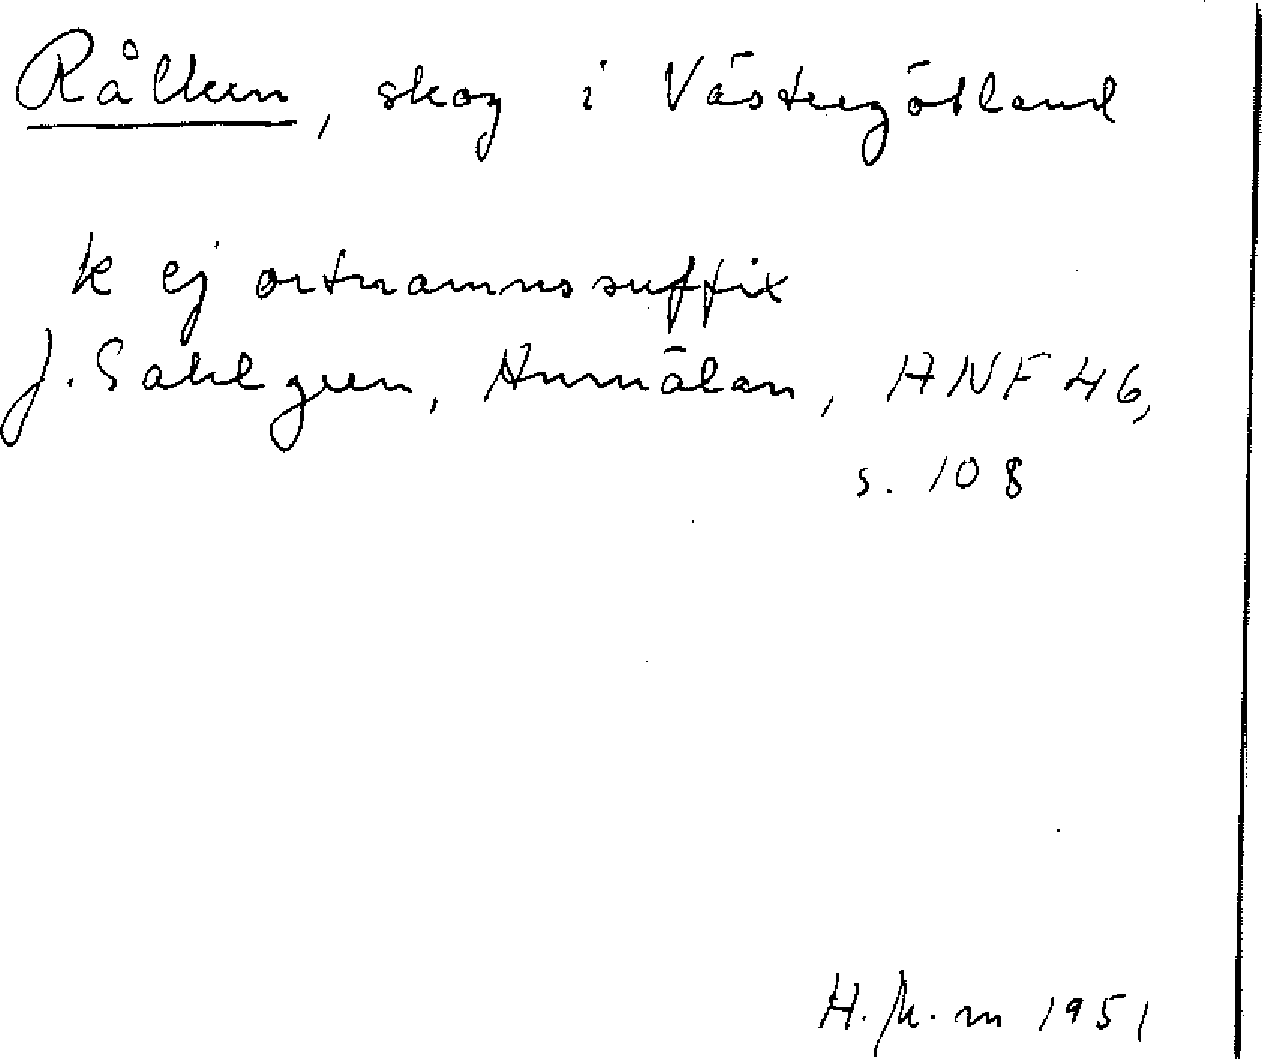 Rålken, skog i Västergötland
k ej ortnamnssuffix
J. Sahlgren, Anmälan, ANF 46,
s. 108
1951